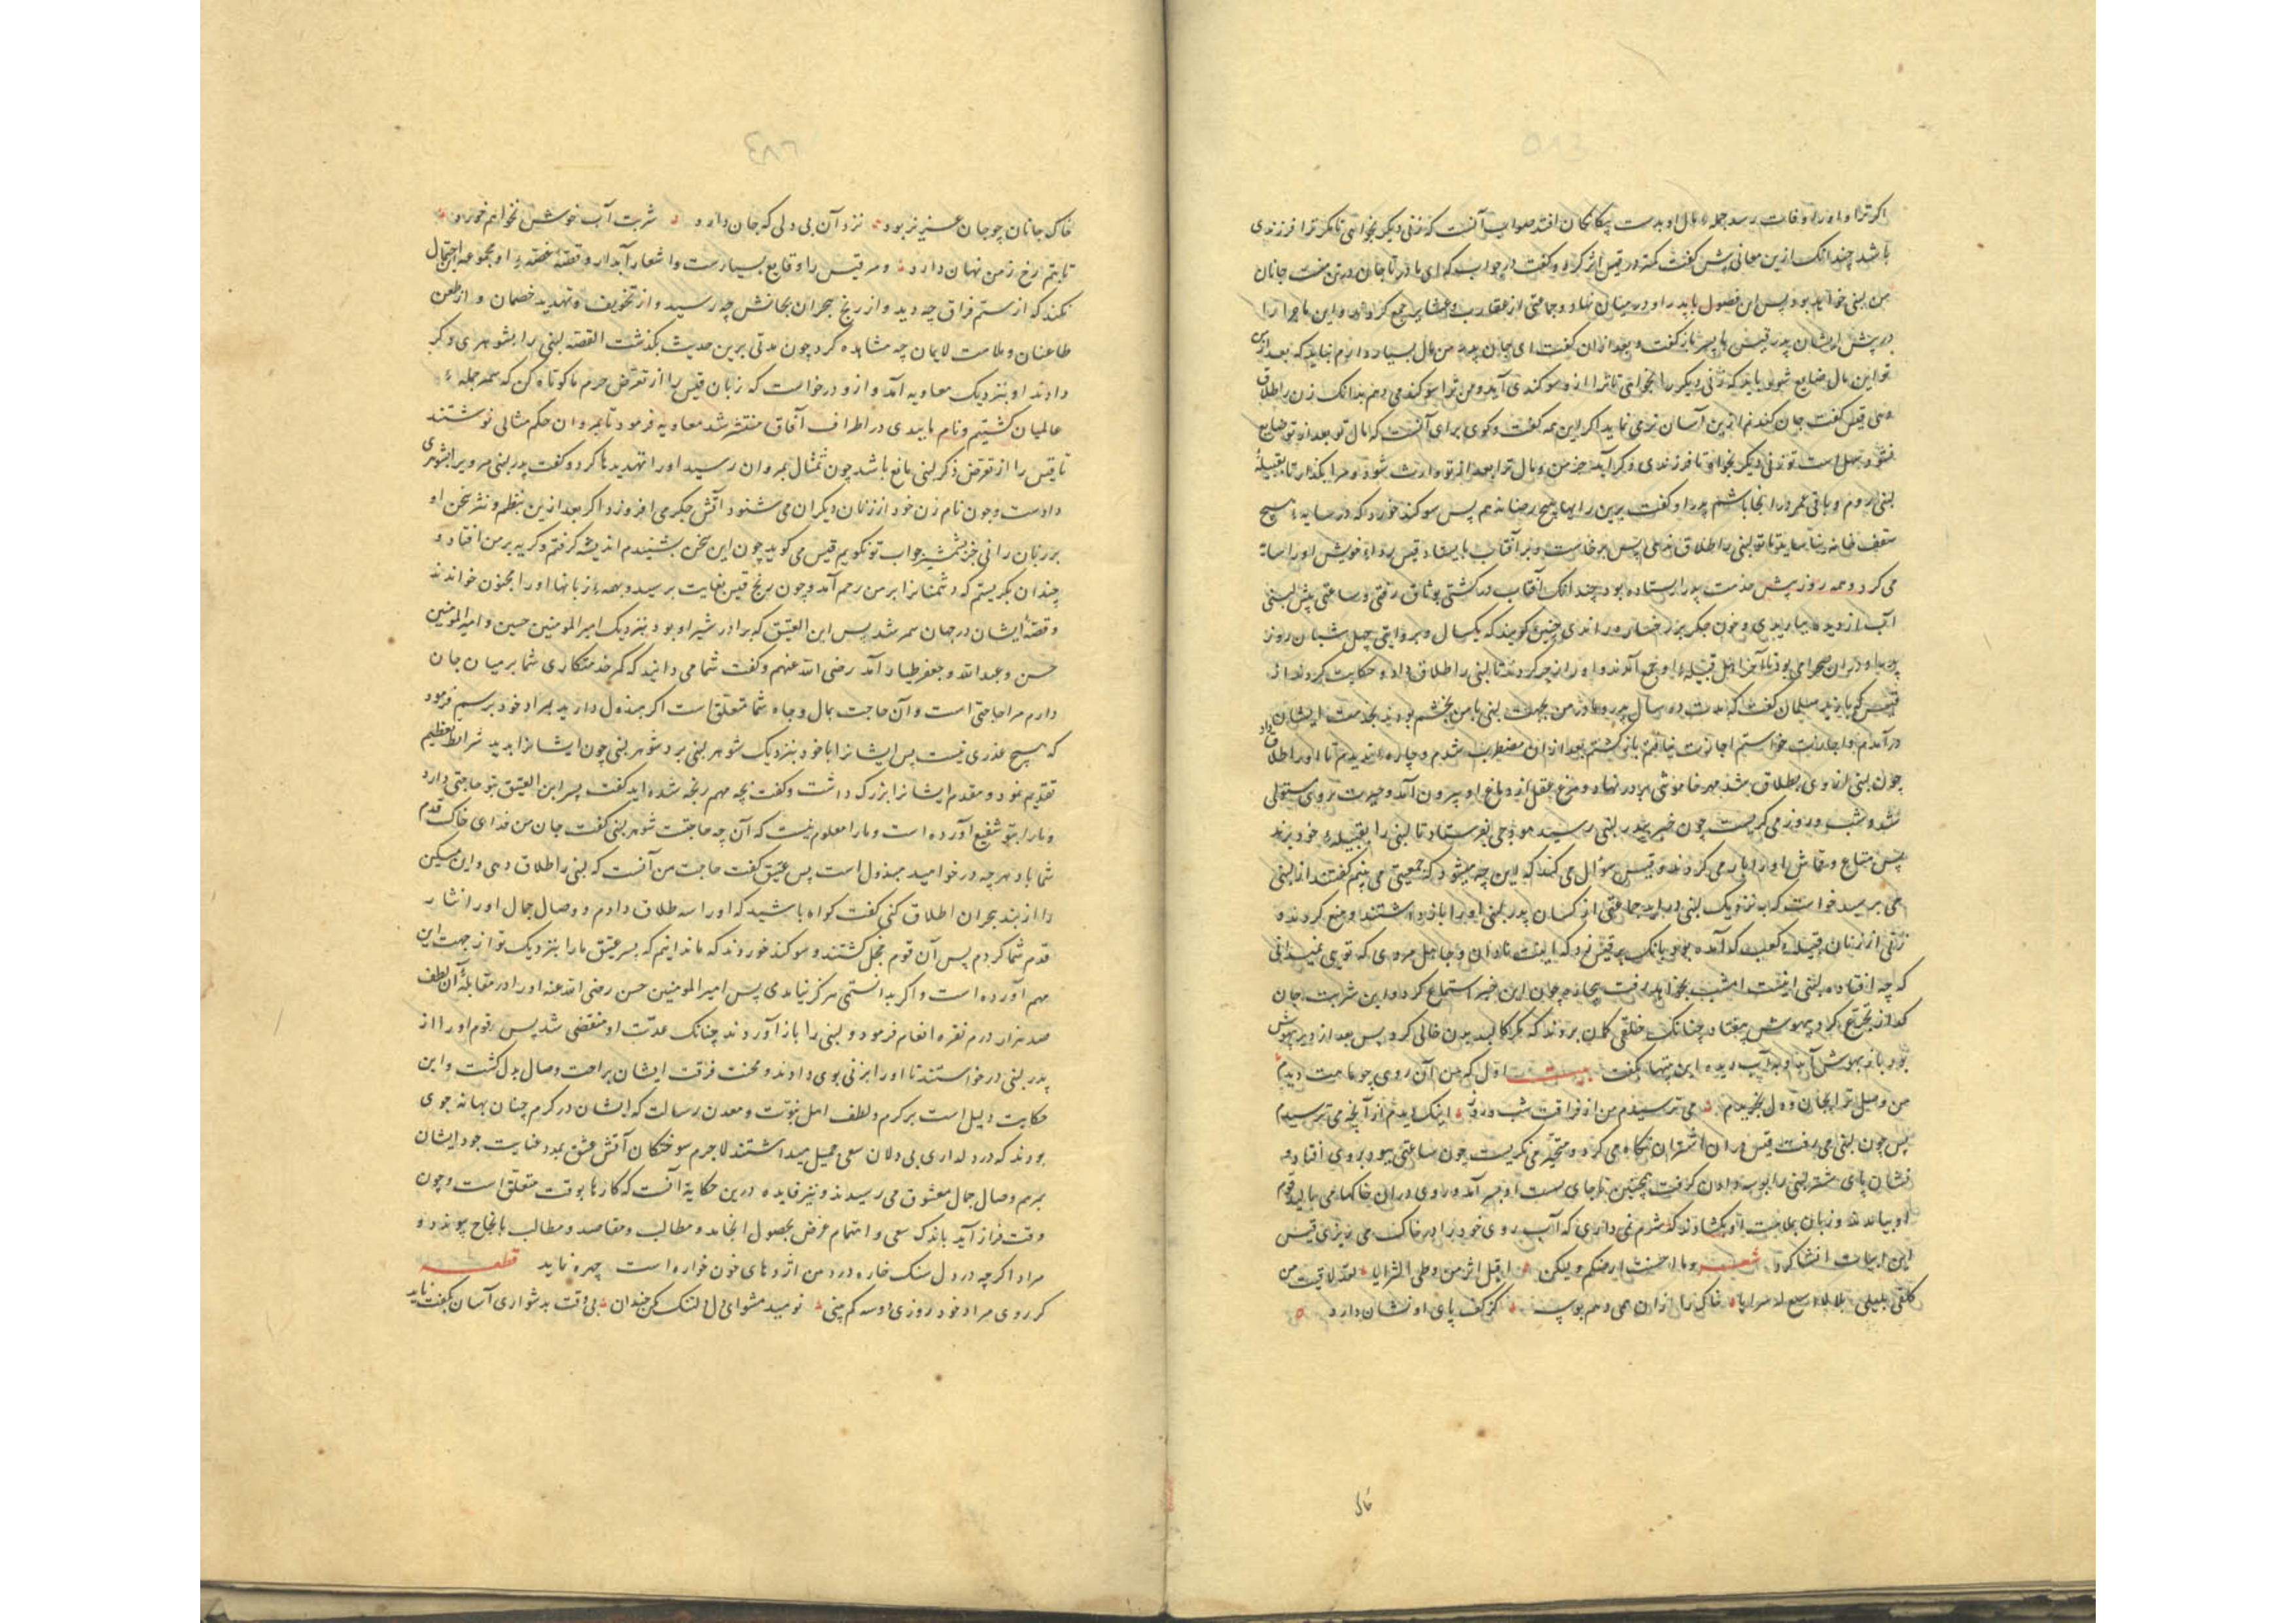 اکر ترا و او را وفات رسد جمله مال او بدست بیکانکان افتد صواب آنست که زنی دیکر بخواهی تا مکر ترا فرزندی
باشد چندانک ازین معانی پیش کفت کمتر در قیس اثر کرد و کفت در جواب که ای مادر تا جان در تن منست جانان
من لبنی خواهد بود پس این فصول با پدر او در میان نهاد و جماعتی از عقارب و عشایر جمع کردند و این ماجرا را
در پیش ایشان پدر قیس با پسر باز کفت و بعد از ان کفت ای جان پدر من مال بسیار دارم نباید که بعد از
تو این مال ضایع شود باید که زنی دیکر را بخواهی تا ترا ازو سوکندی آید و من ترا سوکند می دهم بدانک زن را طلاق
دهی قیس کفت جان کندنم ازین آسان تر می نماید اکر این همه کفت و کوی برای آنست که مال تو بعد از تو ضایع
نشود سهل است تو زنی دیکر بخواه تا فرزندی دیکر آید جز من و مال ترا بعد از تو وارث شود و مرا بکذار تا بقبیلهٔ
لبنی روم و باقی عمر در انجا باشم پدر او کفت برین را هم هیچ رضا ندهم پس سوکند خورد که در سایهٔ هیچ
سقف خانه نیاساید تا تو لبنی را طلاق ندهی پس برخاست و در آفتاب بایستاد قیس برداء خویش او را سایه
می کرد و همه روز پیش خدمت پدر ایستاده بود چندانک آفتاب در کشتی بوثاق رفتی و ساعتی پیش لبنی
آب از دیده بباریدی و خون جکر بر رخسار راندی چنین کویند که یکسال و بروایتی چهل شبان روز
پدر او در ان صحرا می بود تا آخر اهل قبیله او جمع آمدند و او را زجر کردند تا لبنی را طلاق داد و حکایت کردند از
درآمدم و اجازت خواستم اجازت نیافتم بازکشتم بعد از ان مضطرب شدم و چاره ندیدم تا او را طلاق داد
چون لبنی از وی بطلاق بشد مهر خاموشی بر در نهاد و مرغ عقل از دماغ او بیرون آمد و حیرت بروی مستولی
شد و شب و روز می کریست چون خبر بپدر لبنی رسید هودجی بفرستاد تا لبنی را بقبیلهٔ خود برند
پس متاع و قماش او را بار می کردند و قیس سؤال می کند که این چه میشود که جمعیتی می بینم کفتند از لبنی
می پرسید خواست که نزدیک لبنی درآید جماعتی از کسان پدر لبنی او را باز داشتند و منع کردند و
زنی از زنان قبیلهٔ کعب که آمده بود بانک بر قیس زد که اینت نادان و جاهل مردی که توی نمیدانی
که چه افتاده لبنی اینست امشب بخواهد رفت بیچاره چون این خبر استماع کرد و این شربت جان
کداز تجرع کرد بیهوش بیفتاد چنانک خلقی کمان بردند که مکر کالبد بدن خالی کرد پس بعد از دیر بیهوش
بود باز بهوش آمد و به آب دیده این بیتها بکفت بیت اول که من آن روی چو ماهت دیدم
من وصل ترا بجان و دل بخریدم می ترسیدم من از فراقت شب و روز اینک دیدم از آنچه می ترسیدم
پس چون لبنی می رفت قیس در ان اشتران نکاه می کرد و متحیر می نکریست چون ساعتی ببود بروی افتاد و
نشان پای شتر لبنی را بوسه دادن کرفت همچنین تا بجای بست او بسر آمد و روی در ان خاکها می مالید قوم
او بیامدند و زبان ملامت او بکشادند که شرم نمی داری که آب روی خود برابر خاک می ریزی قیس
این ابیات انشا کرد شعر وما احببت ارضکم ولیکن اقبل اثر من وطی الترابا لقد لاقیت من
خاک را ازان همی دهم بوسه کز کف پای او نشان دارد
خاک
خاک جانان چو جان عزیز بود نزد آن بی دلی که جان دارد شربت آب خوش نخواهم خورد
تا بتم رخ ز من نهان دارد و مر قیس را وقایع بسیارست و اشعار آبدار و قصهٔ غصهٔ او مجموعه احتمال
نکند که از ستم فراق چه دید و از رنج هجران بجانش چه رسید و از تخویف و تهدید خصمان و از طعن
طاعنان و ملامت لایمان چه مشاهده کرد چون مدتی برین حدیث بکذشت القصه لبنی را بشوهری دکر
دادند او بنزدیک معاویه آمد و ازو درخواست که زبان قیس را از تعرض حرم ما کوتاه کن که سمر جمله
عالمیان کشتیم و نام ما ببدی در اطراف آفاق منتشر شد معاویه فرمود تا بمروان حکم مثالی نوشتند
تا قیس را از تعرض ذکر لبنی مانع باشد چون مثال بمروان رسید او را تهدیدها کرد و کفت پدر لبنی مرو را بشوهری
دادست و چون نام زن خود از زبان دیکران می شنود آتش جکر می افروزد اکر بعد ازین بنظم و نثر سخن او
بر زبان رانی جز بشمشیر جواب تو نکویم قیس می کوید چون این سخن بشنیدم اندیشه کرفتم و کریه بر من افتاد و
چندان بکریستم که دشمنانرا بر من رحم آمد و چون رنج قیس بغایت برسید و همه زبانها او را مجنون خواندند
و قصهٔ ایشان در جهان سمر شد پس ابن العتیق که برادر شیر او بود بنزدیک امیرالمومنین حسین و امیرالمومنین
حسن و عبدالله و جعفر طیار آمد رضی الله عنهم و کفت شما می دانید که کمر خدمتکاری شما بر میان جان
دارم مرا حاجتی است و آن حاجت بمال و جاه شما متعلق است اکر مبذول دارید بمراد خود برسم فرمود
که هیچ عذری نیست پس ایشانرا با خود بنزدیک شوهر لبنی برد شوهر لبنی چون ایشانرا بدید شرایط تعظیم
تقدیم نمود و مقدم ایشانرا بزرک داشت و کفت بچه مهم رنجه شده اید کفت پسر ابن العتیق بتو حاجتی دارد
و ما را بتو شفیع آورده است و ما را معلوم نیست که آن چه حاجتست شوهر لبنی کفت جان من فدای خاک قدم
شما باد هر چه درخواهید مبذول است پس عتیق کفت حاجت من آنست که لبنی را طلاق دهی و این مسکین
را از بند هجران اطلاق کنی کفت کواه باشید که او را سه طلاق دادم و وصال جمال او را نثار
قدم شما کردم پس آن قوم خجل کشتند و سوکند خوردند که ما ندانیم که پسر عتیق ما را بنزدیک تو از جهت این
مهم آورده است و اکر بدانستمی هرکز نیامدی پس امیرالمومنین حسن رضی الله عنه او را در مقابلهٔ آن لطف
صد هزار درم نقره انعام فرمود و لبنی را باز آوردند چنانک عدت او منقضی شد پس قوم او را از
پدر لبنی درخواستند تا او را بزنی بوی دادند و محنت فرقت ایشان براحت وصال بدل کشت و این
حکایت دلیل است بر کرم و لطف اهل نبوت و معدن رسالت که ایشان در کرم چنان بهانه جوی
بودند که در دلداری بی دلان سعی جمیل میداشتند لاجرم سوختکان آتش عشق بمدد عنایت جود ایشان
بمرهم وصال جمال معشوق می رسیدند و نیز فایده درین حکایة آنست که کارها بوقت متعلق است و چون
وقت فراز آید باندک سعی و اهتمام غرض بحصول انجامد و مطالب و مقاصد و مطالب بانجاح پیوندد و
مراد اکرچه در دل سنک خاره در دهن اژدهای خون خواره است چهره نماید قطعه
کر روی مراد خود روزی دوسه کم بینی نومید مشو ای دل لنک کن چندان بی وقت بدشواری آسان بکفت ناید